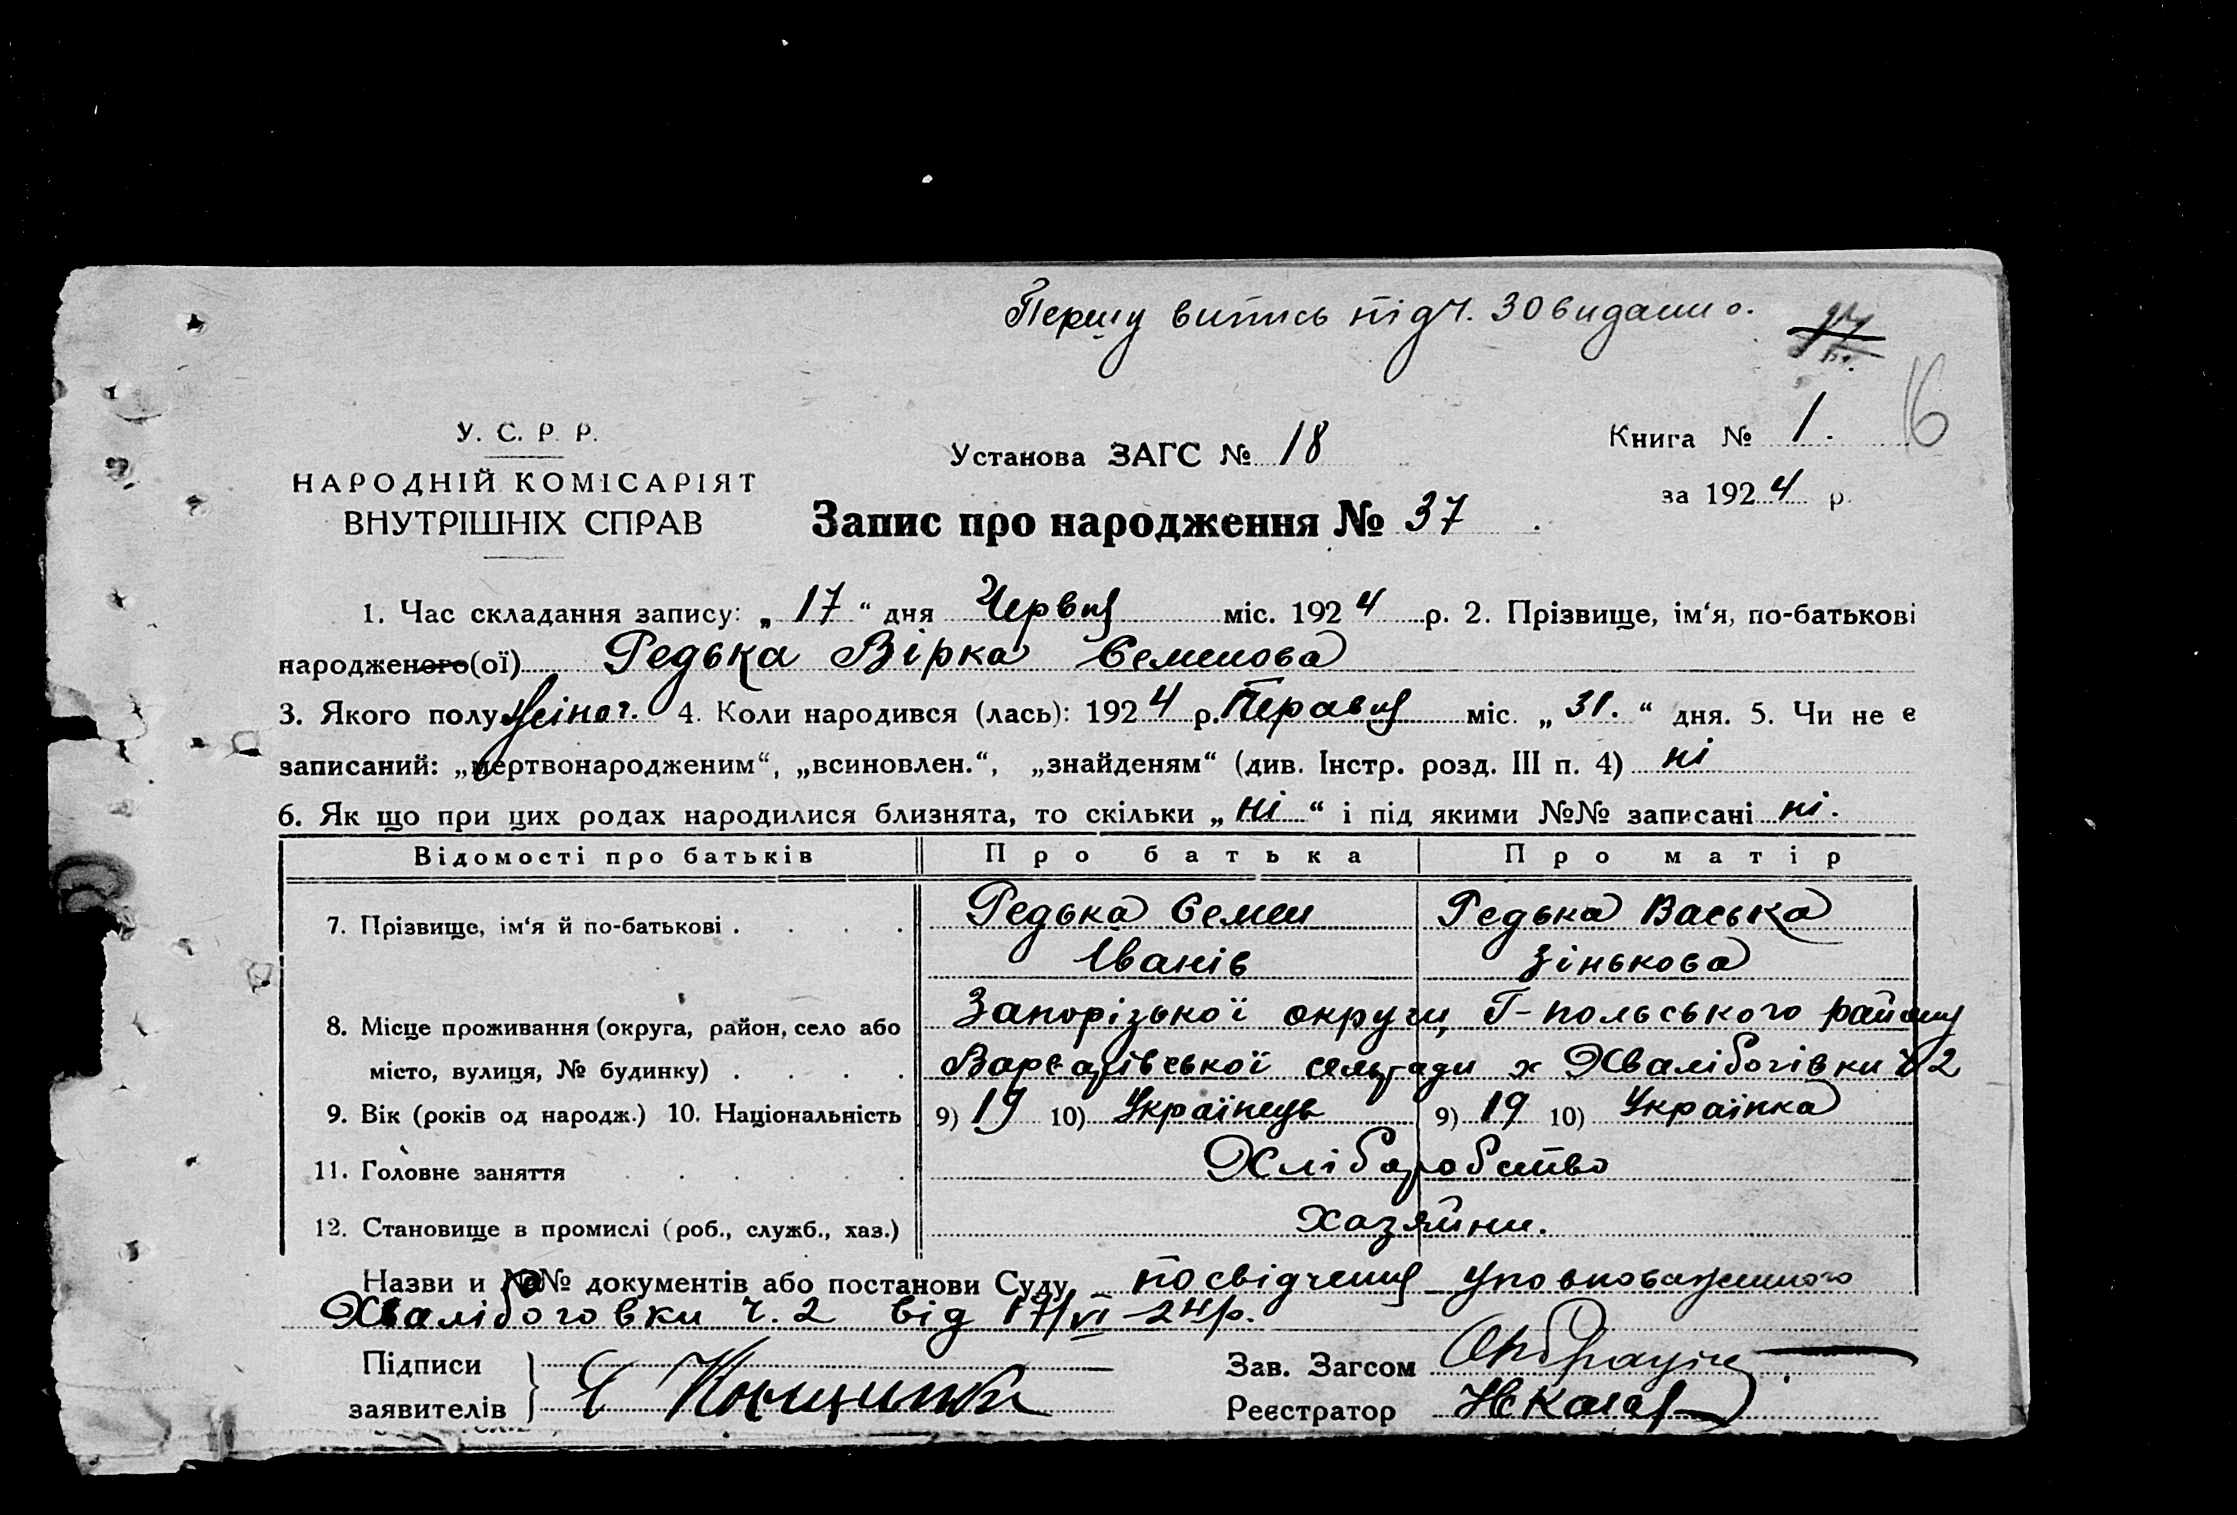 Першу випись під ч. 30 видано.
16
У. С. Р. Р.
НАРОДНІЙ КОМІСАРІЯТ
ВНУТРІШНІХ СПРАВ
Установа ЗАГС № 18
Книга № 1.
за 1924 р.
Запис про народження № 37
1. Час складання запису: „ 17 “ дня Червня міс. 1924 р. 2. Прізвище, ім‘я, по-батькові
народженого(ої) Редька Вірка Семенова
3. Якого полу жіноч. 4. Коли народився (лась): 1924 р. Травня міс. „ 31. “ дня. 5. Чи не є
записаний: „мертвонародженим“, „всиновлен.“, „знайденям“ (див. Інстр. розд. III п. 4) ні
6. Як що при цих родах народилися близнята, то скільки „ ні “ і під якими №№ записані ні.
Відомості про батьків Про батька Про матір
7. Прізвище, ім‘я й по-батькові . . . . Редька Семен Редька Васька
Іванів Зінькова
8. Місце проживання (округа, район, село або Запорізької округи, Г-польського району
місто, вулиця, № будинку) . . . . сельради х Хвалібогівки ч 2
9. Вік (років од народж.) 10. Національність 9) 19 10) Українець 9) 19 10) Українка
11. Головне заняття . . . . . Хліборобство
12. Становище в промислі (роб., служб., хаз.) хазяйни.
Назви и №№ документів або постанови Суду посвідчення уповноваженного
Хвалібоговки ч. 2 від 17/VI-24р.
Підписи
заявителів
Зав. Загсом
Реєстратор